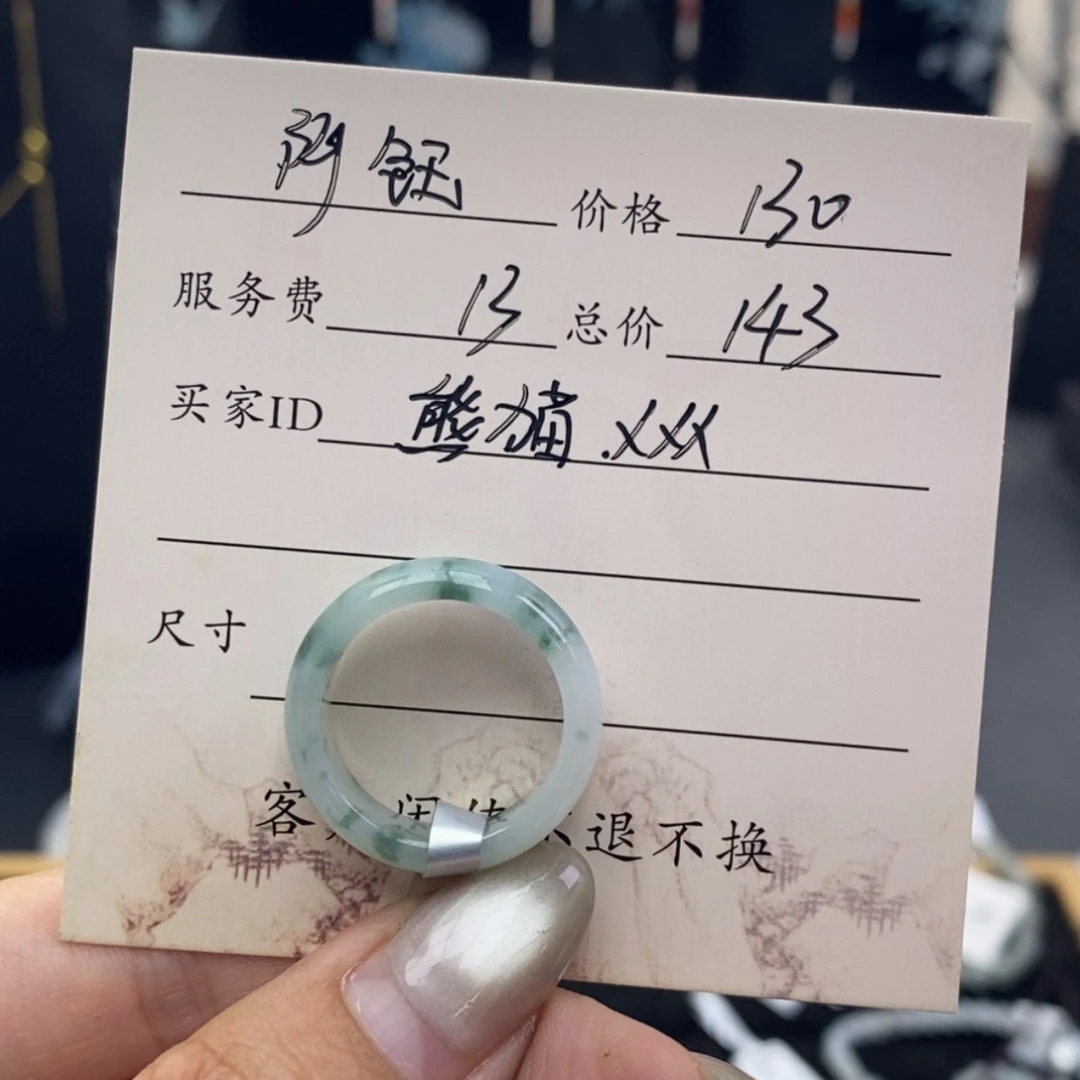 阿钰 价格 130
服务费 13 总价 143
买家ID 熊猫.xxx
尺寸
客 不退不换